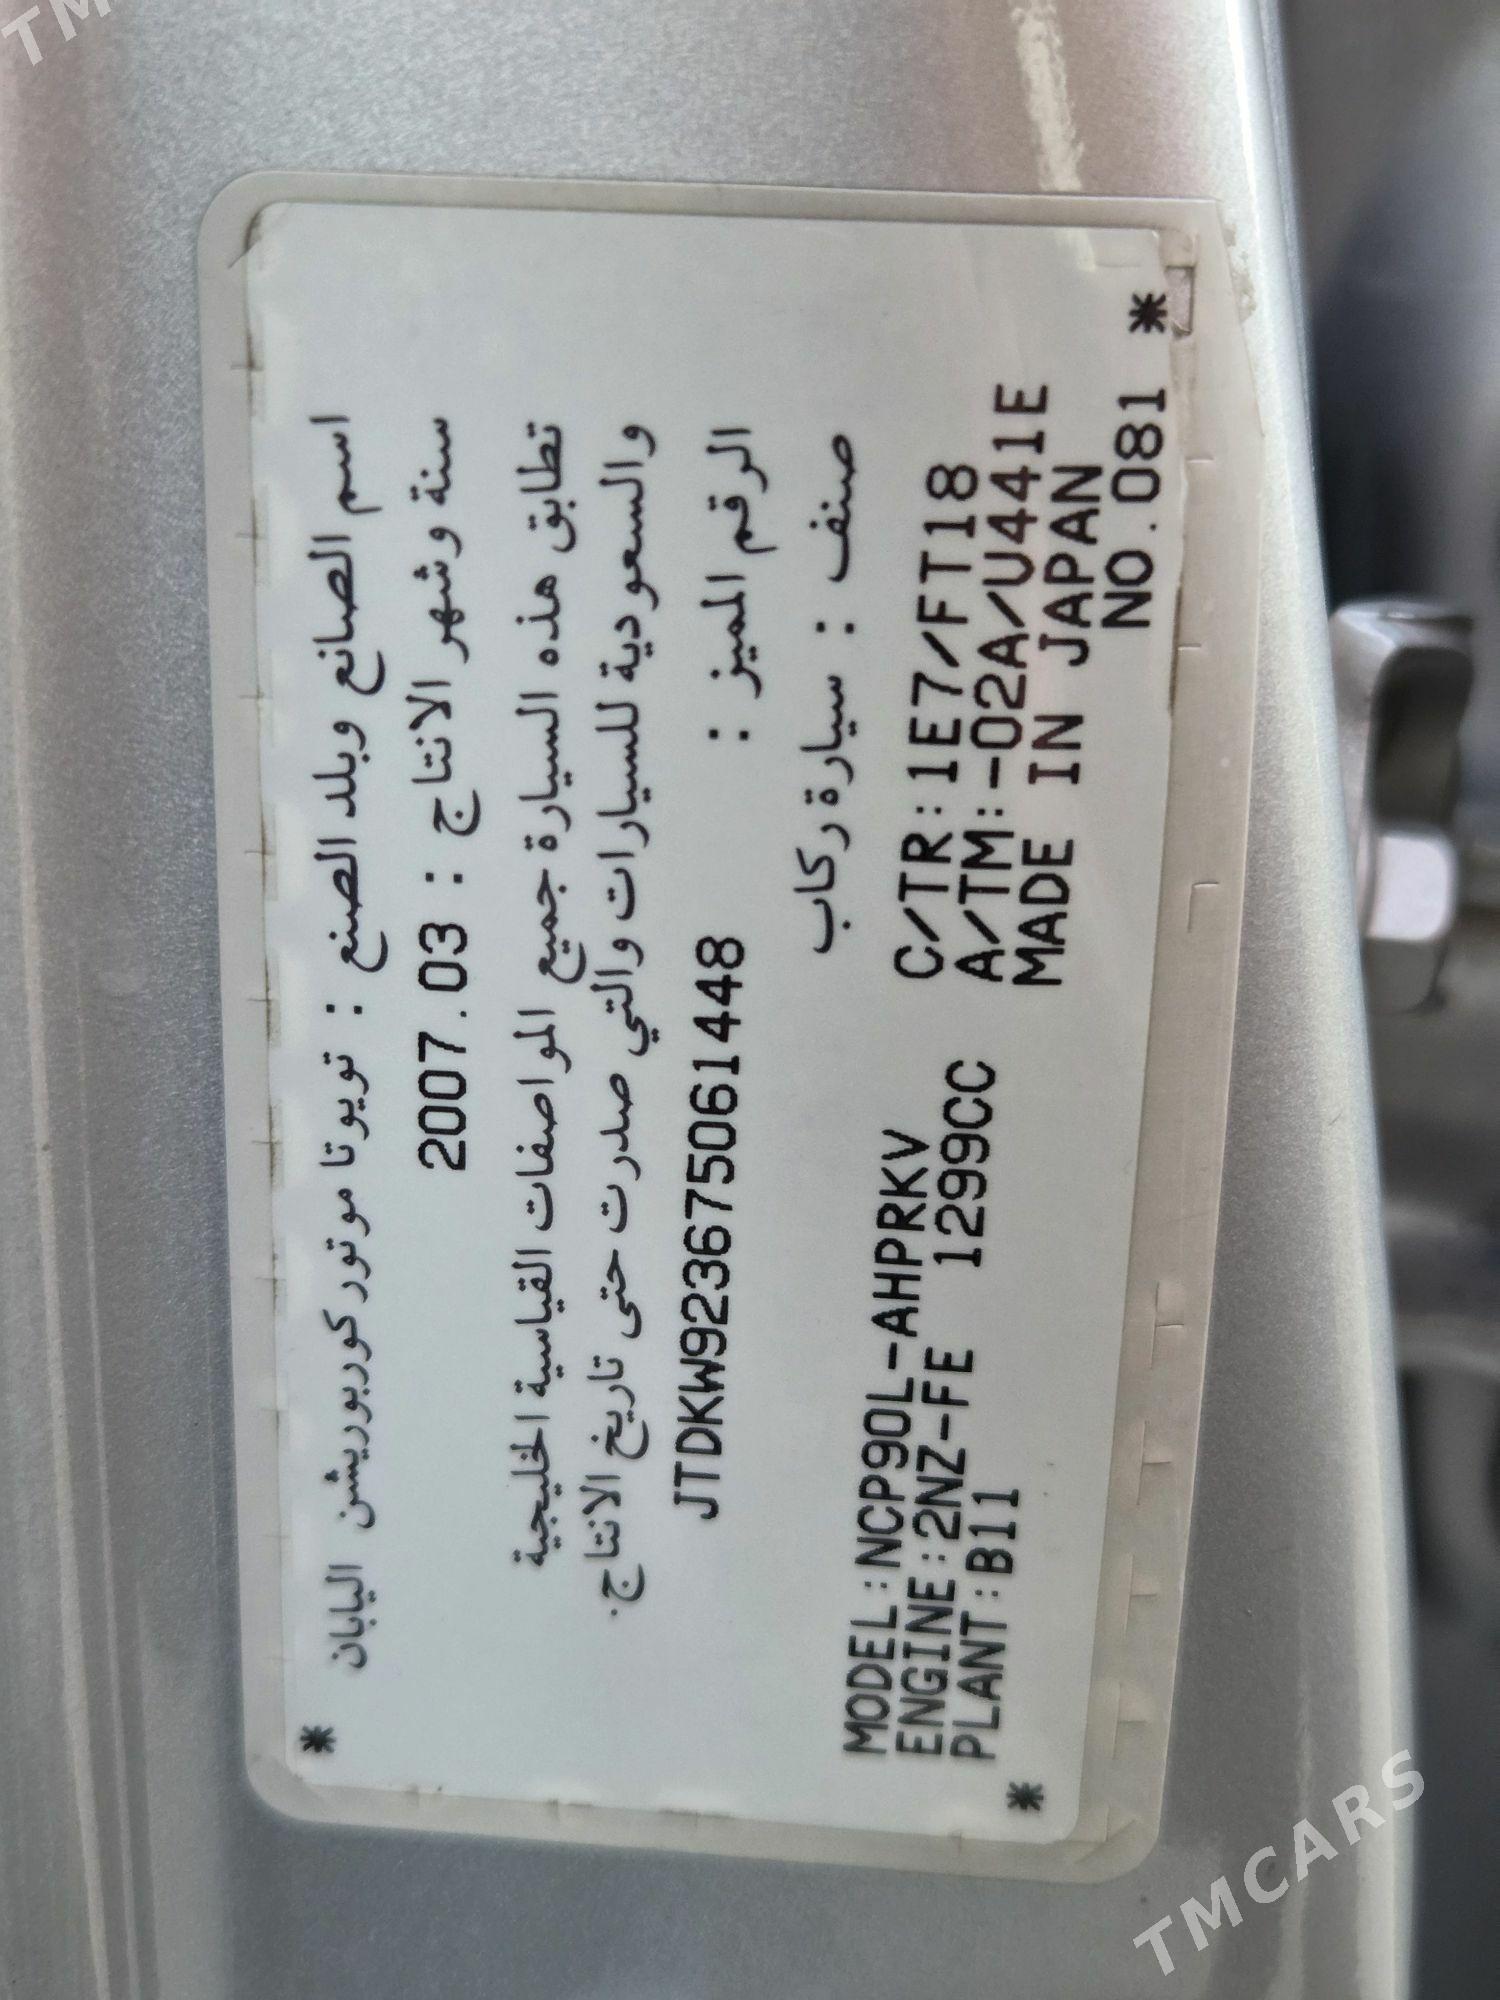 *
اسم الصانع وبلد الصنع : تويوتا موتور كوربوريشن اليابان
سنة وشهر الانتاج : 2007.03
تطابق هذه السيارة جميع المواصفات القياسية الخليجية
والسعودية للسيارات والتي صدرت حتى تاريخ الانتاج.
الرقم المميز : JTDKW923675061448
صنف : سيارة ركاب
MODEL:NCP90L-AHPRKV C/TR:1E7/FT18
ENGINE:2NZ-FE 1299CC A/TM:-02A/U441E
PLANT:B11 MADE IN JAPAN
* NO.081 *
TMCARS
TM